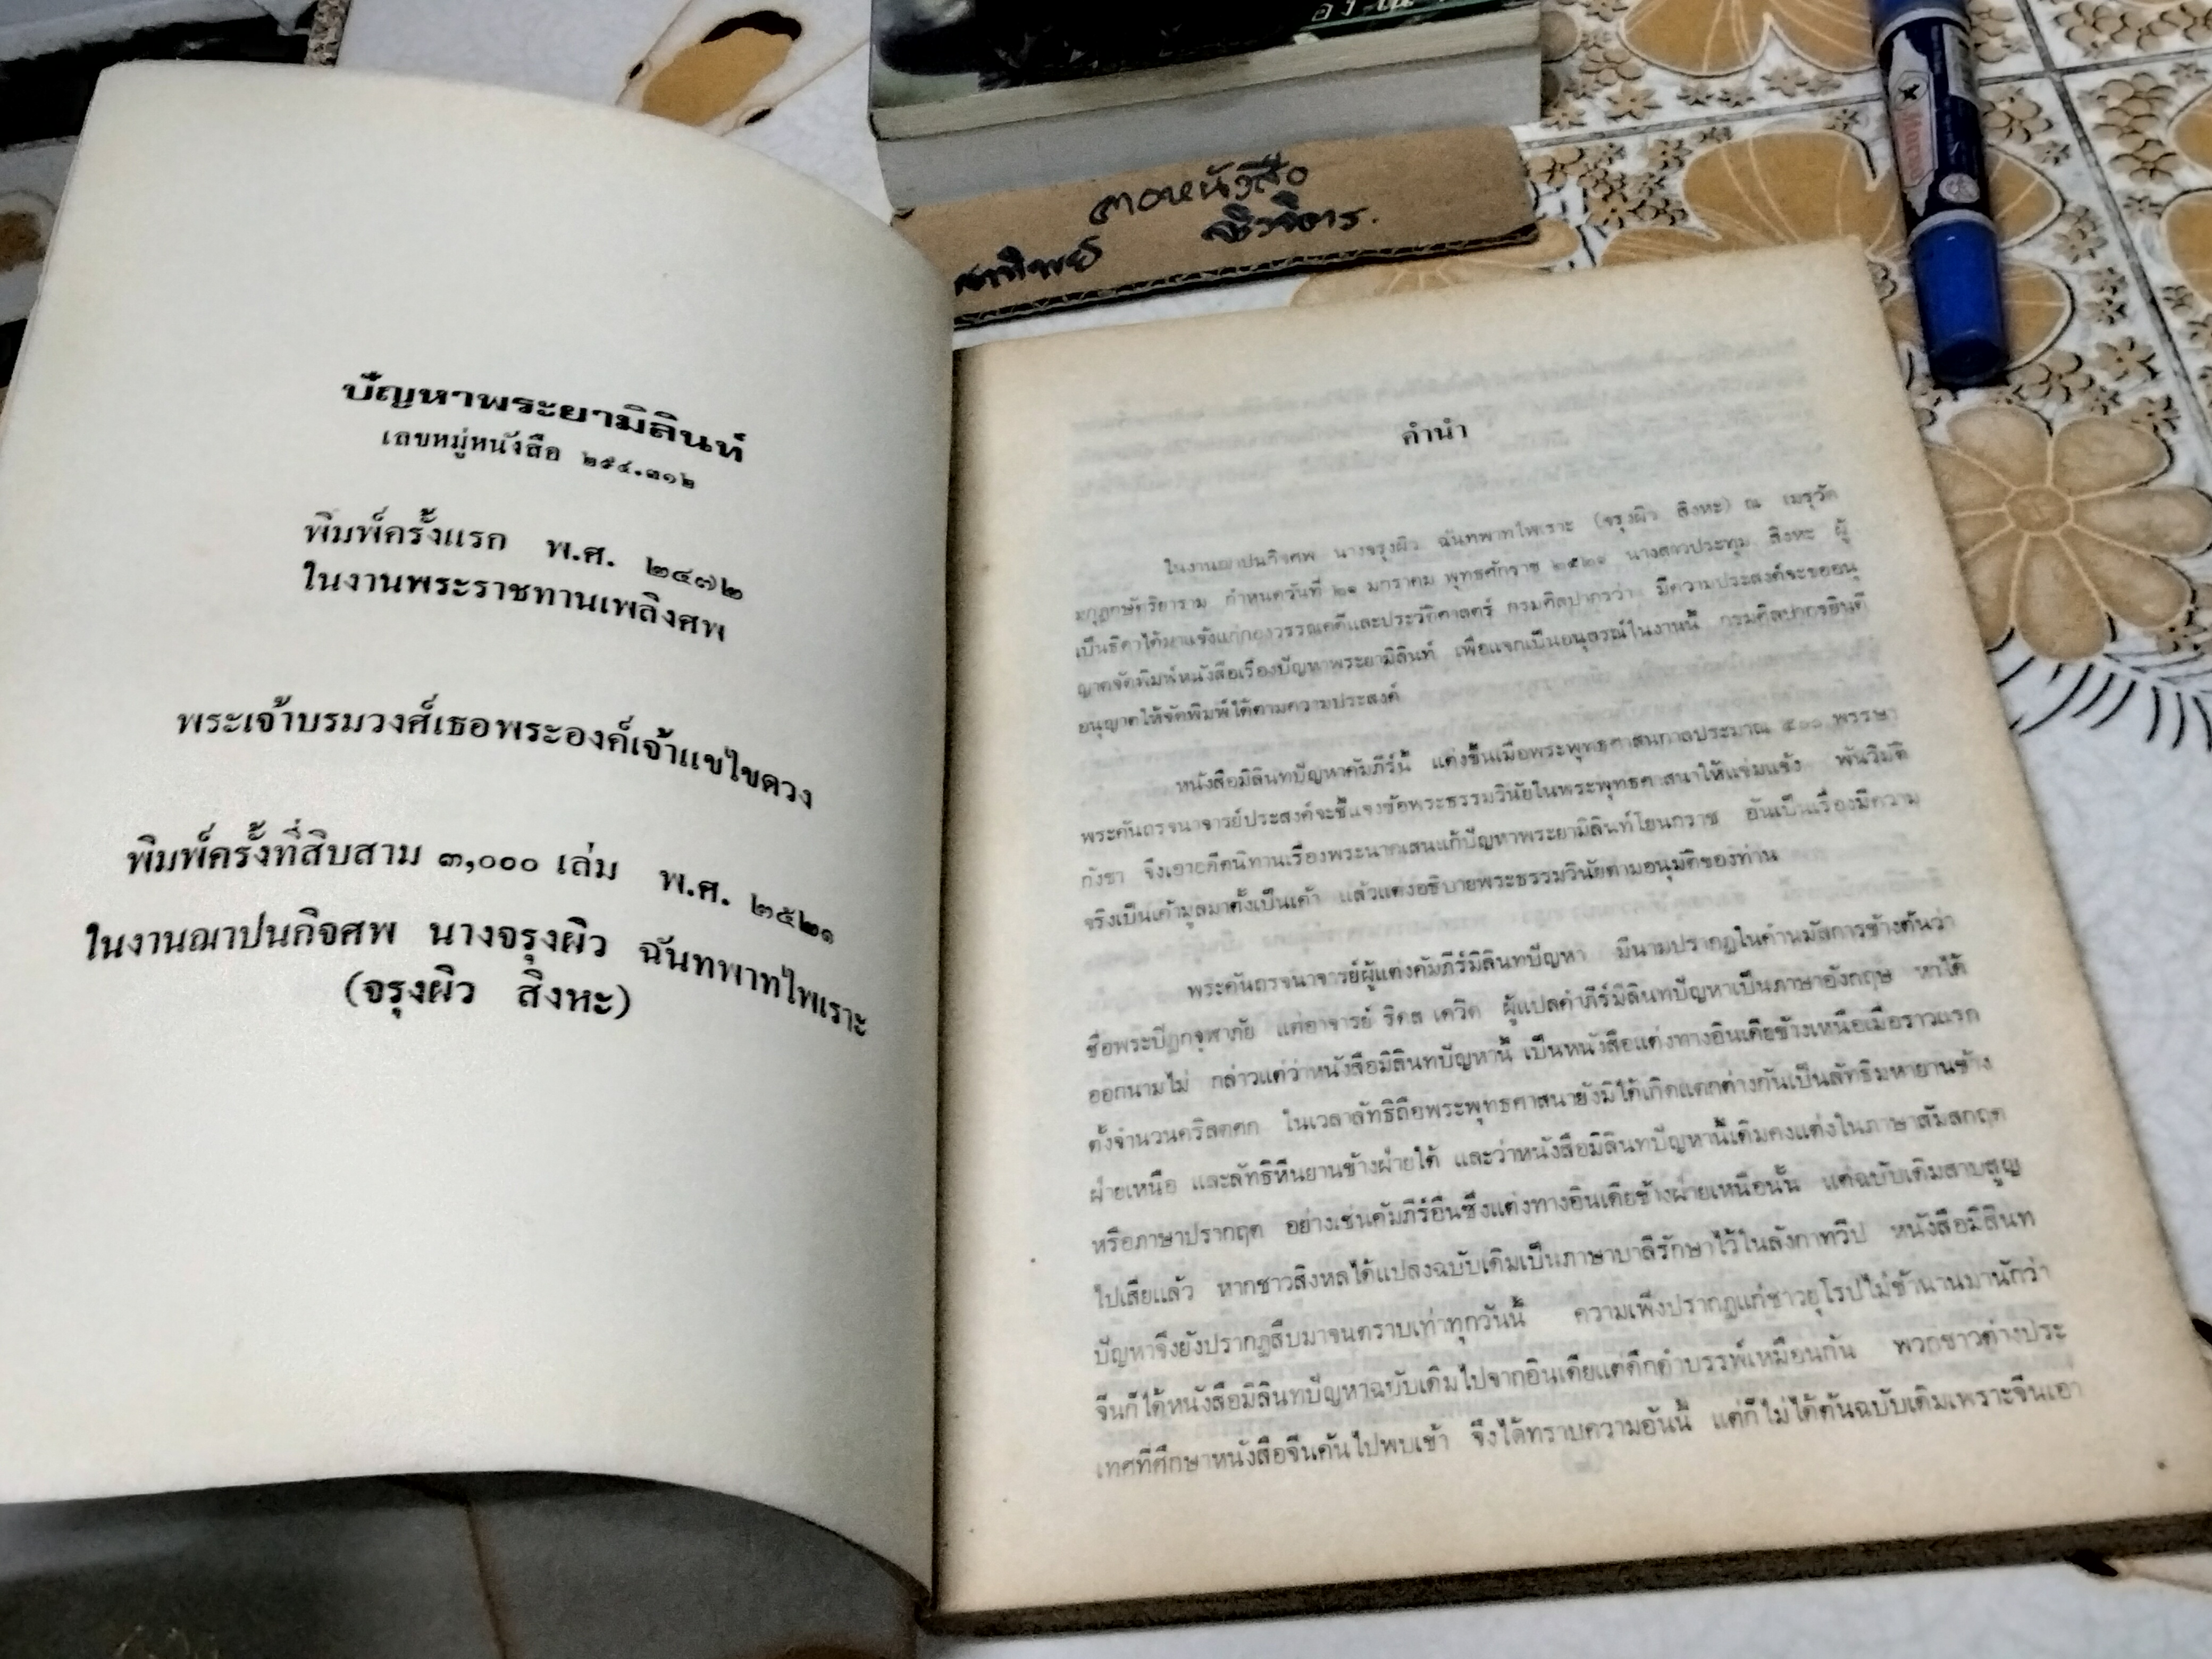 ปัญหาพระยามิลินท์
เลขหมู่หนังสือ ๒๙๔.๓๑๒
พิมพ์ครั้งแรก พ.ศ. ๒๔๗๒
ในงานพระราชทานเพลิงศพ
พระเจ้าบรมวงศ์เธอพระองค์เจ้าแขไขดวง
พิมพ์ครั้งที่สิบสาม ๓,๐๐๐ เล่ม พ.ศ. ๒๕๒๑
ในงานฌาปนกิจศพ นางจรุงผิว ฉันทพาทไพเราะ
(จรุงผิว สิงหะ)
หนังสือ
คำนำ
ในงานฌาปนกิจศพ นางจรุงผิว ฉันทพาทไพเราะ (จรุงผิว สิงหะ) ณ เมรุวัด
มกุฏกษัตริยาราม กำหนดวันที่ ๒๑ มกราคม พุทธศักราช ๒๕๒๑ นางสาวประทุม สิงหะ ผู้
เป็นธิดาได้มาแจ้งแก่กองวรรณคดีและประวัติศาสตร์ กรมศิลปากรว่า มีความประสงค์จะขออนุ
ญาตจัดพิมพ์หนังสือเรื่องปัญหาพระยามิลินท์ เพื่อแจกเป็นอนุสรณ์ในงานนี้ กรมศิลปากรยินดี
อนุญาตให้จัดพิมพ์ได้ตามความประสงค์
หนังสือมิลินทปัญหาคัมภีร์นี้ แต่งขึ้นเมื่อพระพุทธศาสนกาลประมาณ ๕๐๐ พรรษา
พระคันถรจนาจารย์ประสงค์จะชี้แจงข้อพระธรรมวินัยในพระพุทธศาสนาให้แจ่มแจ้ง พ้นวิมติ
กังขา จึงเอาอดีตนิทานเรื่องพระนาคเสนแก้ปัญหาพระยามิลินท์โยนกราช อันเป็นเรื่องมีความ
จริงเป็นเค้ามูลมาตั้งเป็นเค้า แล้วแต่งอธิบายพระธรรมวินัยตามอนุมัติของท่าน
พระคันถรจนาจารย์ผู้แต่งคัมภีร์มิลินทปัญหา มีนามปรากฏในคำนมัสการข้างต้นว่า
ชื่อพระปิฎกจุฬาภัย แต่อาจารย์ ริดส เดวิด ผู้แปลคำภีร์มิลินทปัญหาเป็นภาษาอังกฤษ หาได้
ออกนามไม่ กล่าวแต่ว่าหนังสือมิลินทปัญหานี้ เป็นหนังสือแต่งทางอินเดียข้างเหนือเมื่อราวแรก
ตั้งจำนวนคริสตศก ในเวลาลัทธิถือพระพุทธศาสนายังมิได้เกิดแตกต่างกันเป็นลัทธิมหายานข้าง
ฝ่ายเหนือ และลัทธิหีนยานข้างฝ่ายใต้ และว่าหนังสือมิลินทปัญหานี้เดิมคงแต่งในภาษาสัมสกฤต
หรือภาษาปรากฤต อย่างเช่นคัมภีร์อื่นซึ่งแต่งทางอินเดียข้างฝ่ายเหนือนั้น แต่ฉบับเดิมสาบสูญ
ไปเสียแล้ว หากชาวสิงหลได้แปลงฉบับเดิมเป็นภาษาบาลีรักษาไว้ในลังกาทวีป หนังสือมิลินท
ปัญหาจึงยังปรากฏสืบมาจนตราบเท่าทุกวันนี้ ความเพิ่งปรากฏแก่ชาวยุโรปไม่ช้านานมานักว่า
จีนก็ได้หนังสือมิลินทปัญหาฉบับเดิมไปจากอินเดียแต่ดึกดำบรรพ์เหมือนกัน พวกชาวต่างประ
เทศที่ศึกษาหนังสือจีนค้นไปพบเข้า จึงได้ทราบความอันนี้ แต่ก็ไม่ได้ต้นฉบับเดิมเพราะจีนเอา